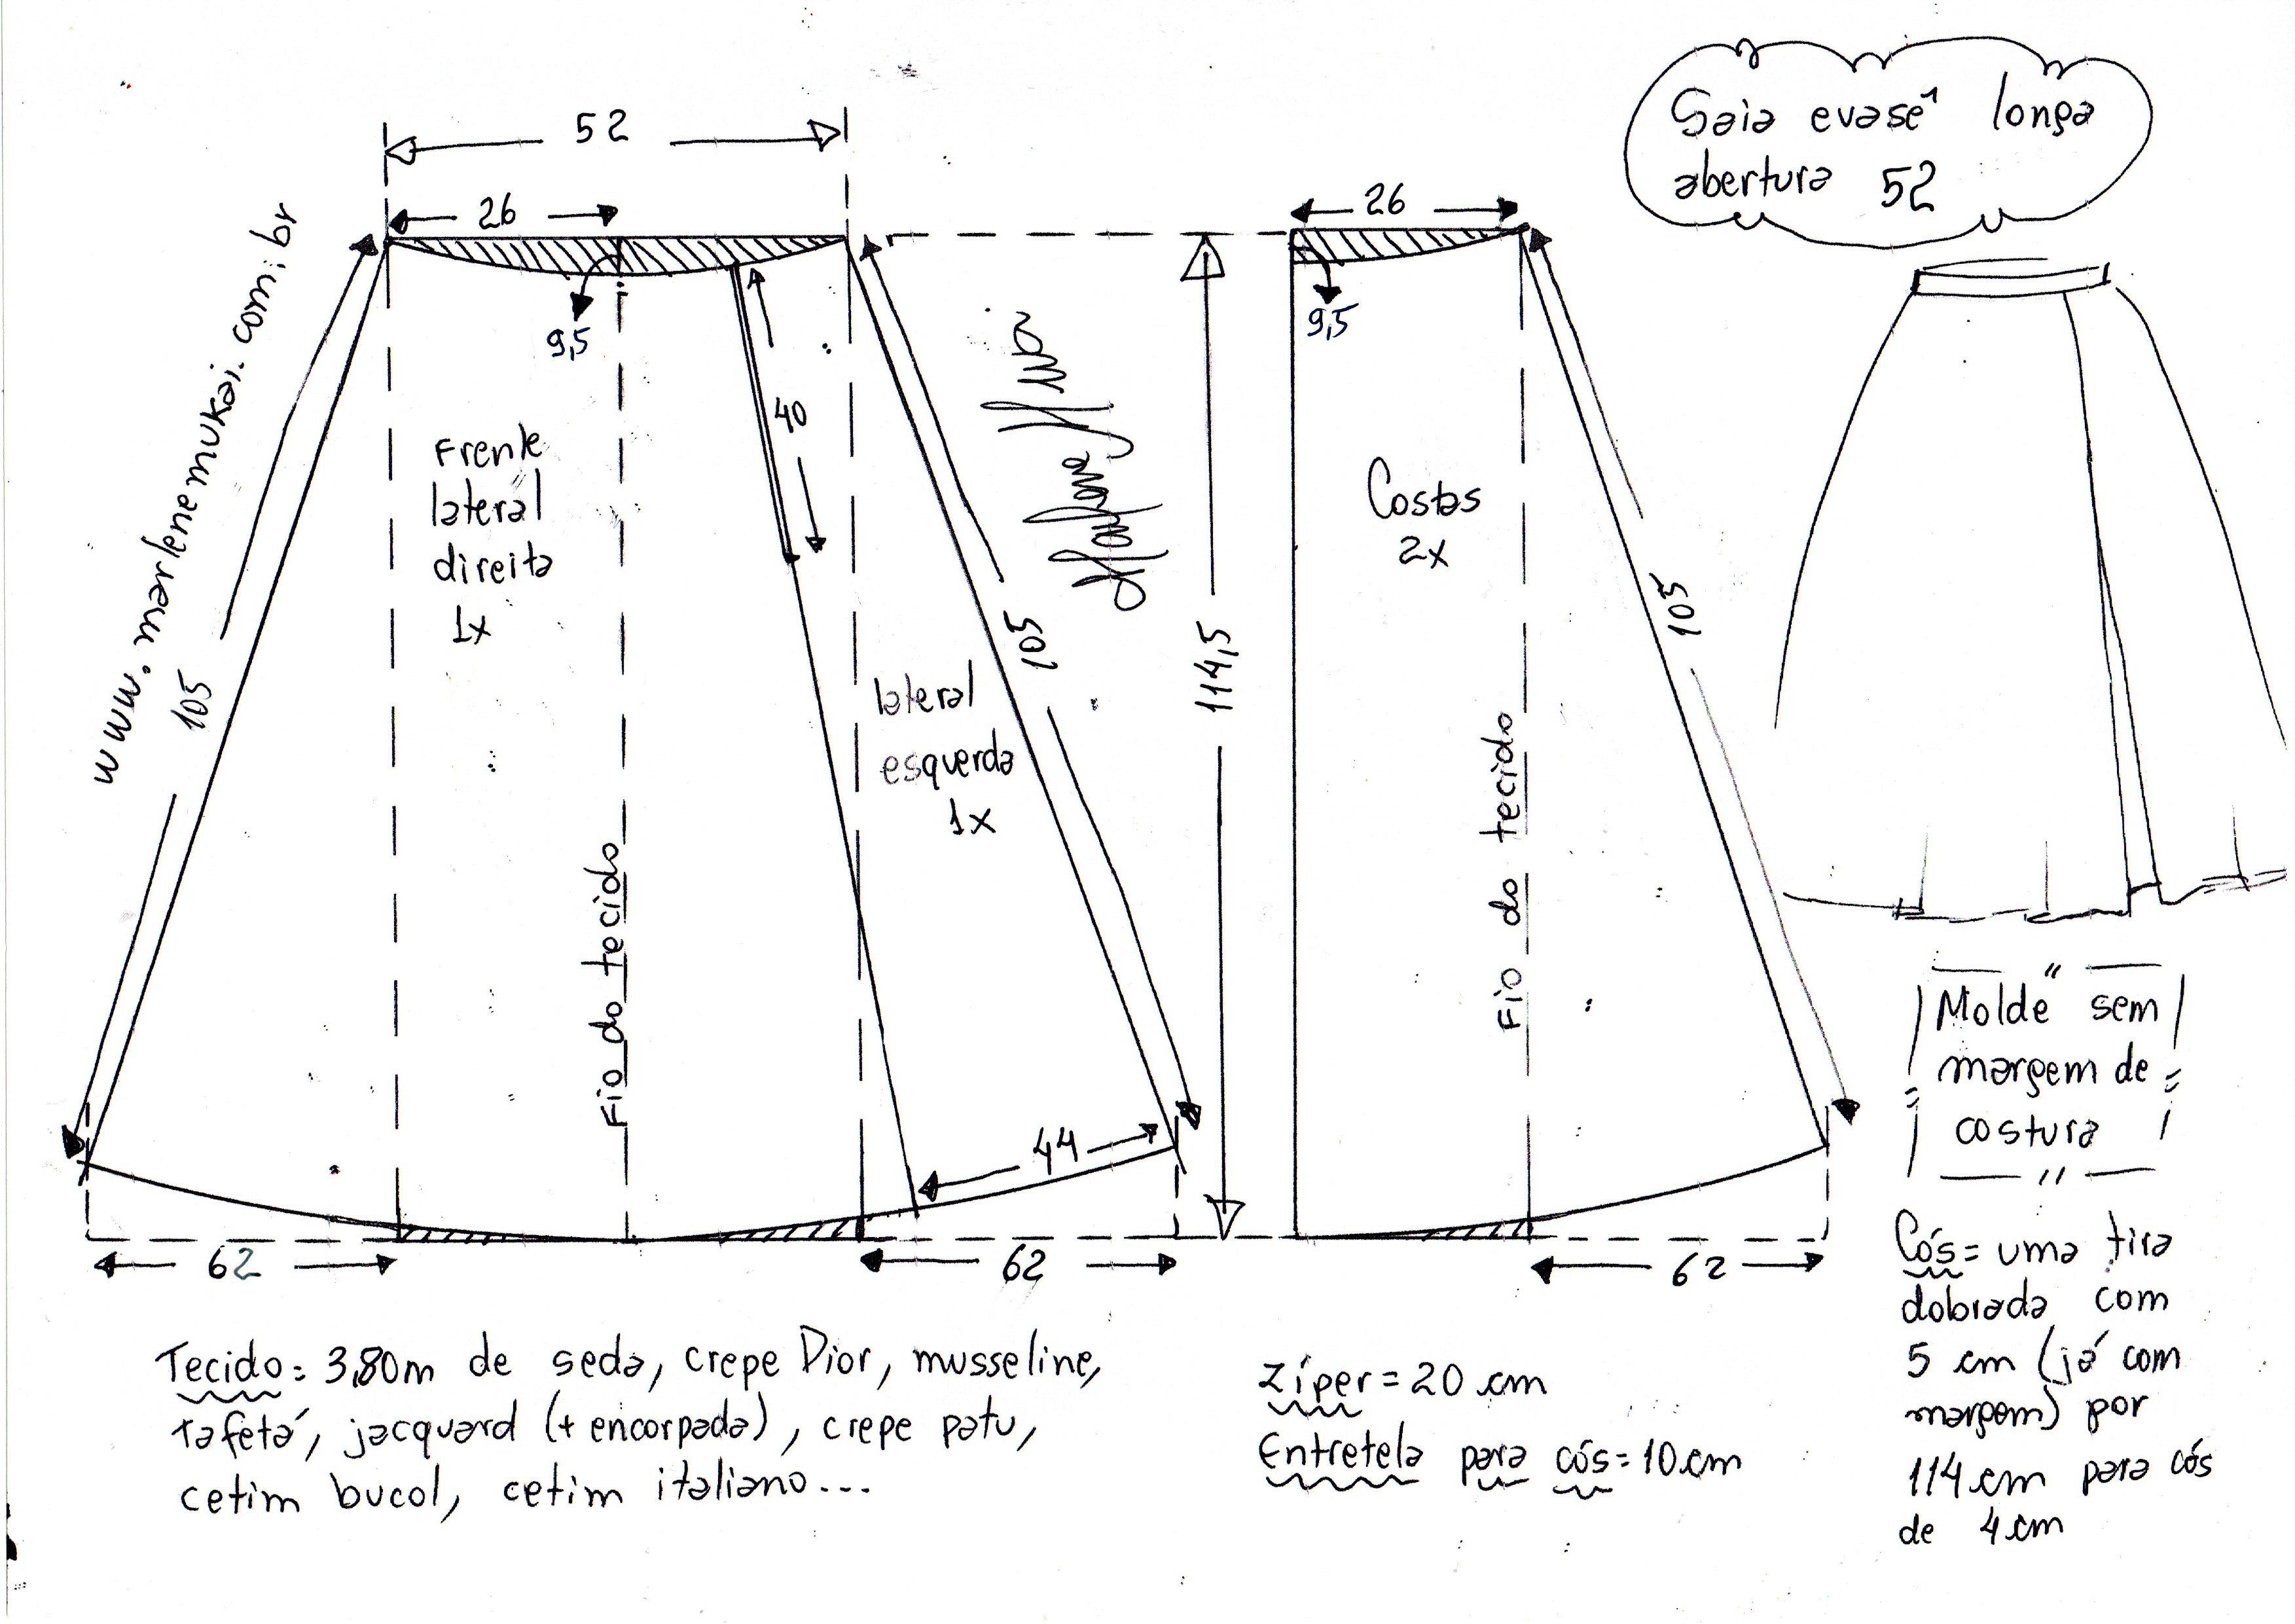 Saia evasê longa
abertura 52
52
26
9,5
40
Frente
lateral
direita
1x
105
www.marlenemukai.com.br
Fio do tecido
lateral
esquerda
1x
105
44
62
62
114,5
26
9,5
Costas
2x
105
Fio do tecido
62
Molde sem
margem de
costura
Cós = uma tira
dobrada com
5 cm (já com
margem) por
114 cm para cós
de 4 cm
Tecido: 3,80m de seda, crepe Dior, musseline,
tafetá, jacquard (+ encorpada), crepe patu,
cetim bucol, cetim italiano...
Zíper = 20 cm
Entretela para cós = 10 cm